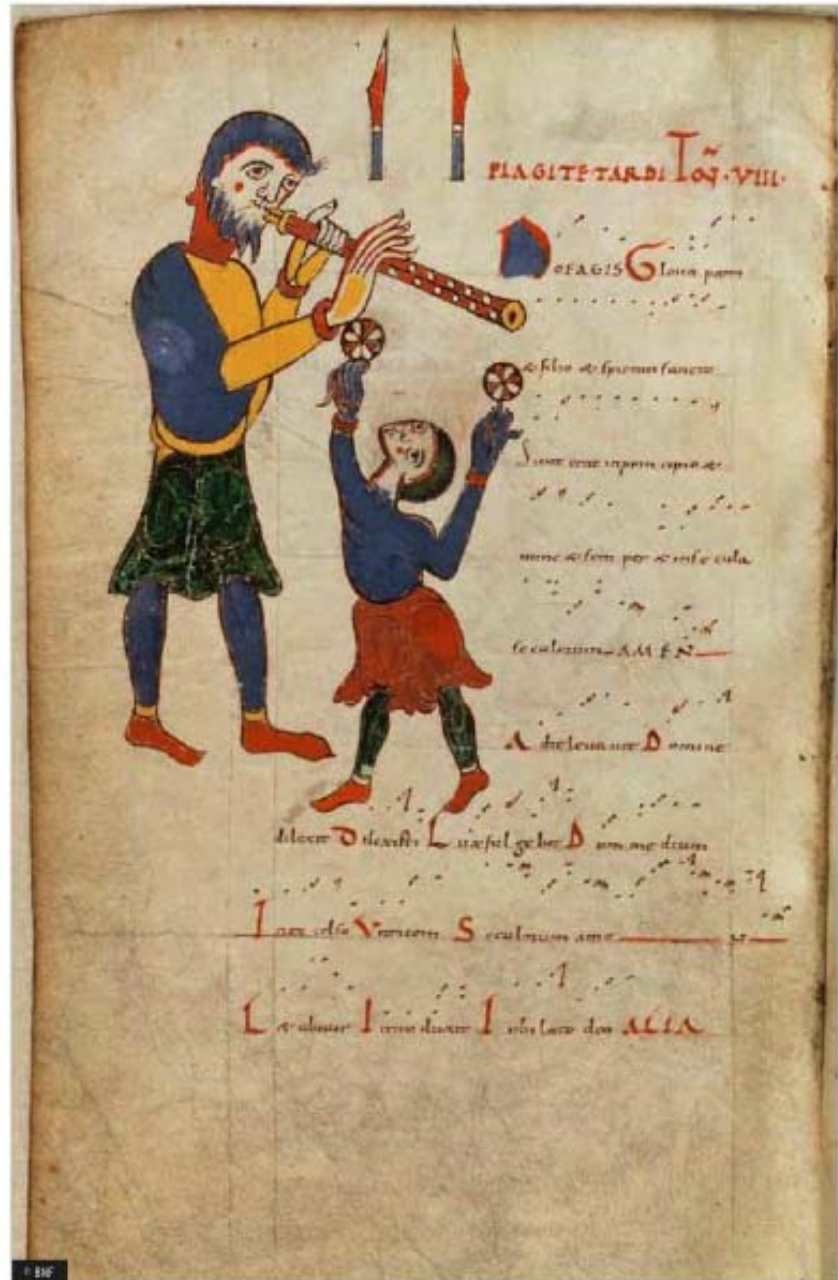 PLAGI TETARDI Toñ · VIII ·
NOEAGIS Gloria patri
& filio & spiritui sancto
Sicut erat in principio &
nunc & sem per & in se cula
seculorum AMEN
Ad te levavi D omine
D ilexisti L ux ful ge bit D um me dium
S eculorum am e N
L &abitur I I ubi late deo ALIA
© BNF